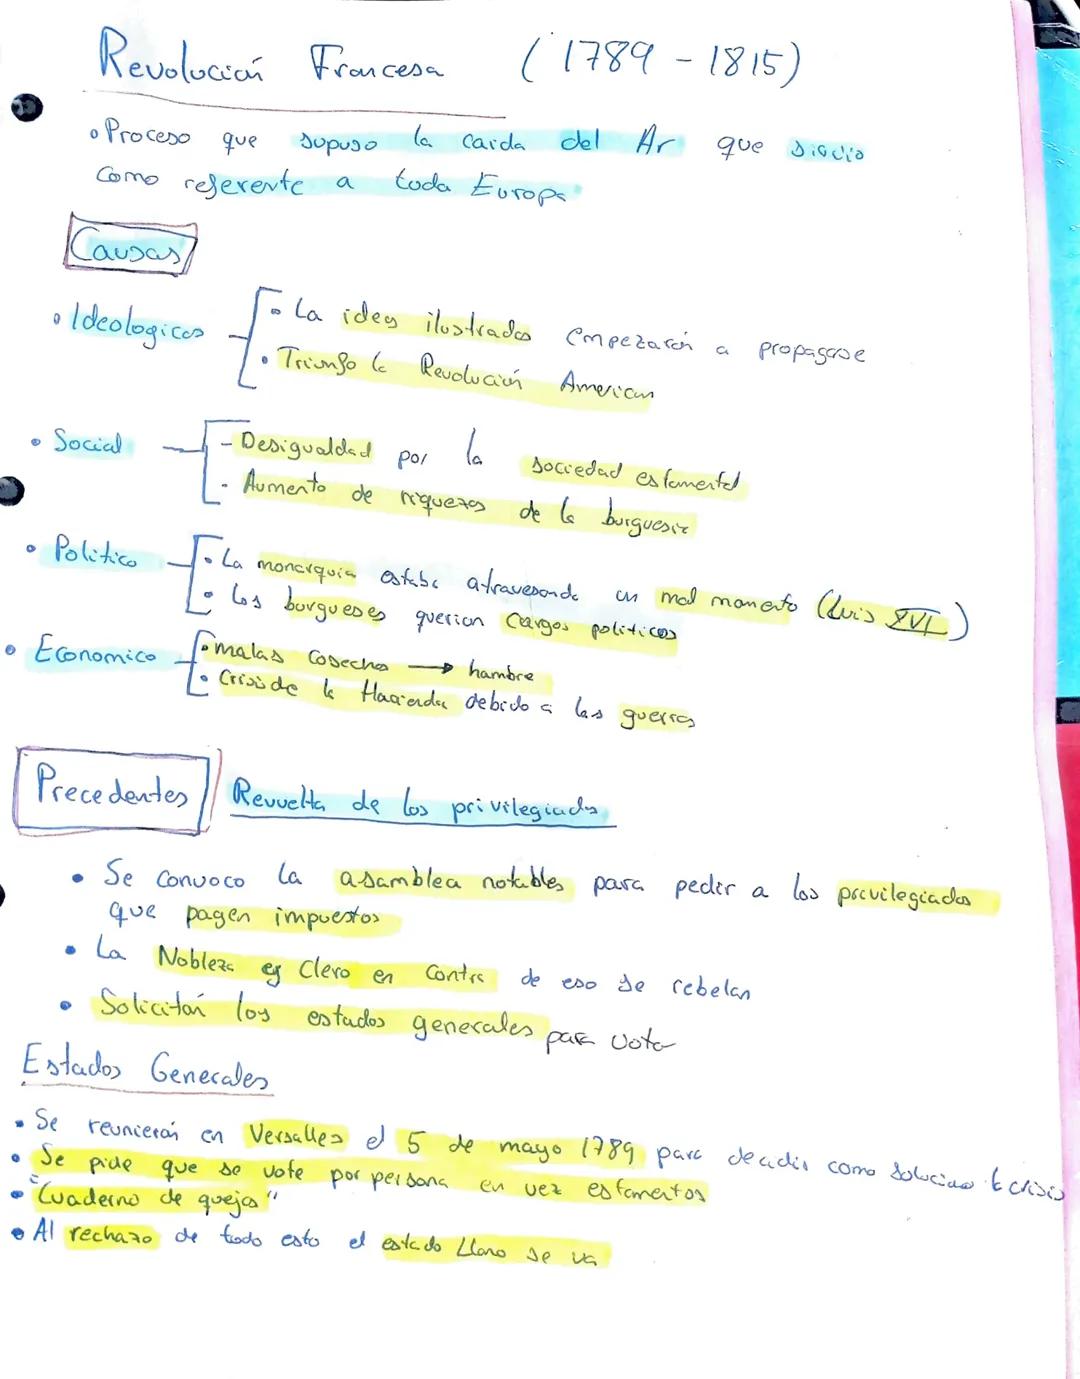 Revolución Francesa (1789 - 1815)
Proceso que supuso la caida del Ar que sirvio
como referente a toda Europa
Causas
Ideologicos
La ideas ilustrados empezarón a propagase
Triunfo la Revolución American
Social
- Desigualdad por la sociedad estamental
Aumento de riquezas de la burguesia
Politico
La monarquia estaba atravesando un mal momento (Luis XVI)
Los burgueses querian Cargos politicos
Economico
malas cosechas → hambre
Crisis de la Hacienda debido a las guerras
Precedentes Revuelta de los privilegiados
Se convoco la asamblea notables para pedir a los privilegiados
que pagen impuestos
La Nobleza y Clero en contra de eso se rebelan
Solicitan los estados generales para votar
Estados Generales
Se reunierón en Versalles el 5 de mayo 1789 para decidir como solucionar la crisis
Se pide que se vote por persona en vez estamentos
"Cuaderno de quejas"
Al rechazo de todo esto el estado Llano se va